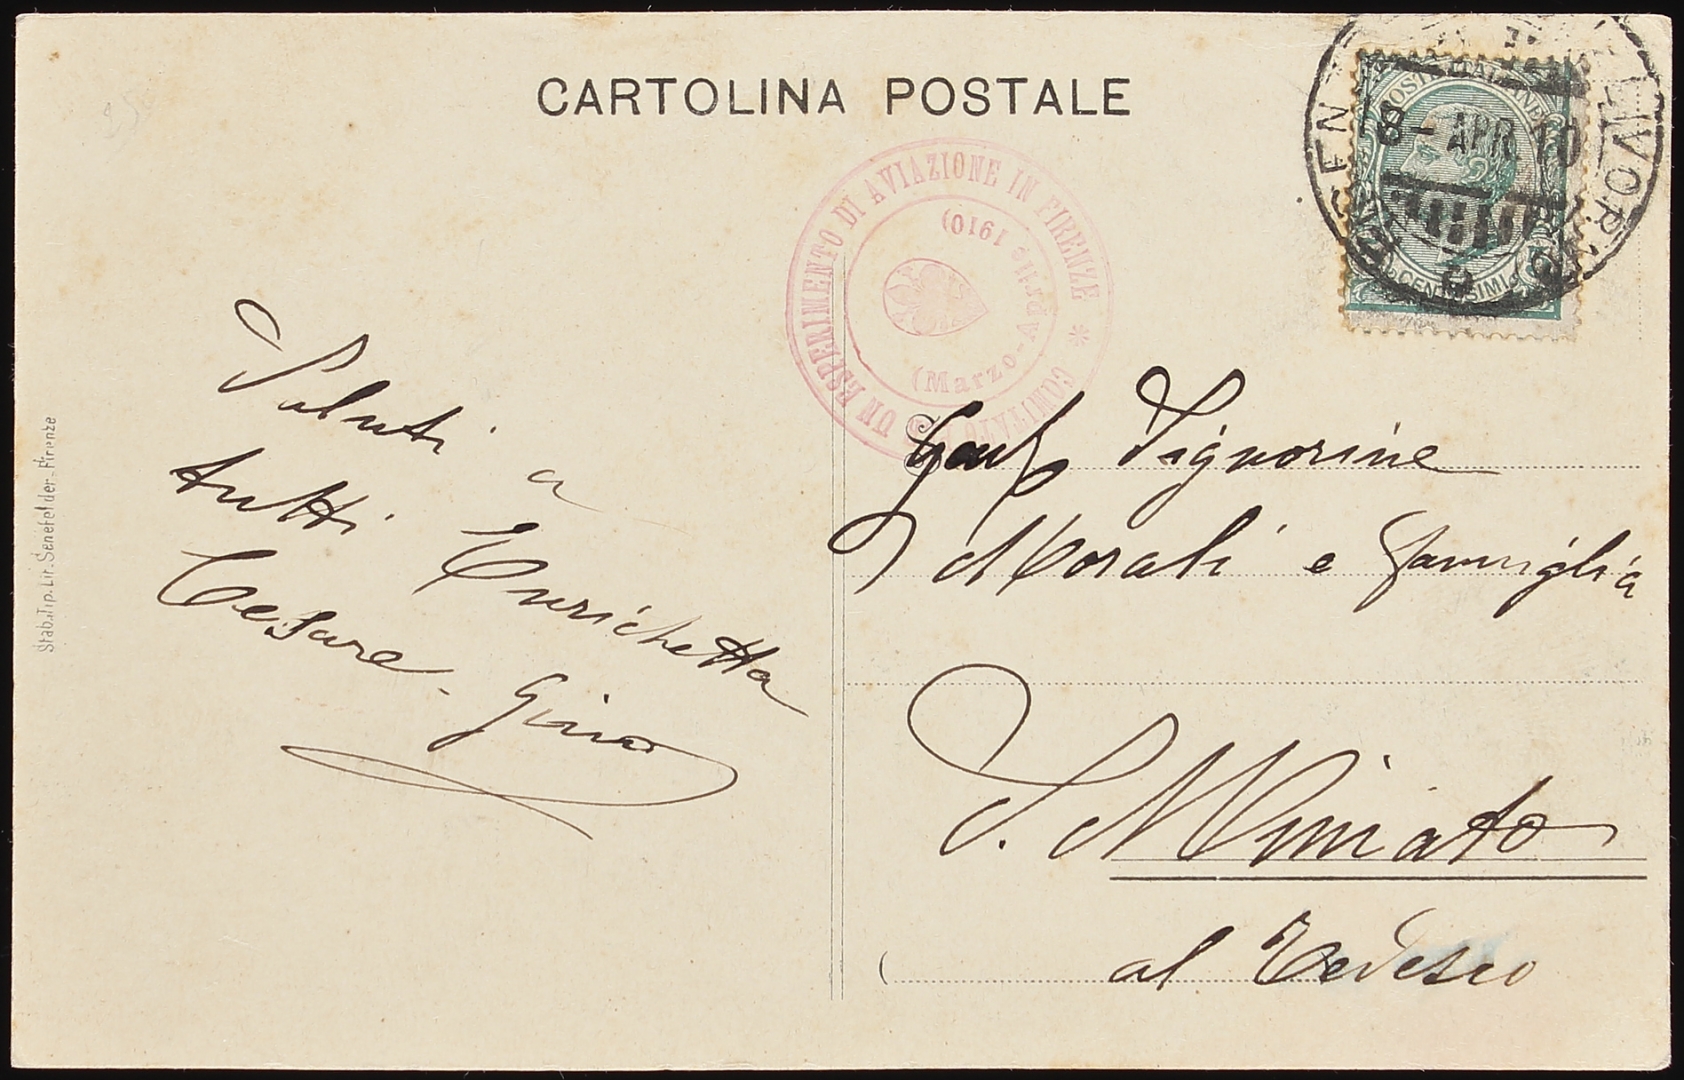 CARTOLINA POSTALE
COMITATO UN ESPERIMENTO DI AVIAZIONE IN FIRENZE *
(Marzo-Aprile 1910)
POSTE ITALIANE
CENTESIMI
APR 10
LIVOR
Saluti a
tutti Enrichetta
Cesare. Gino
Gent Signorine
Morali e famiglia
S. Miniato
al Tedesco
Stab. Tip. Lit. Senefelder - Firenze